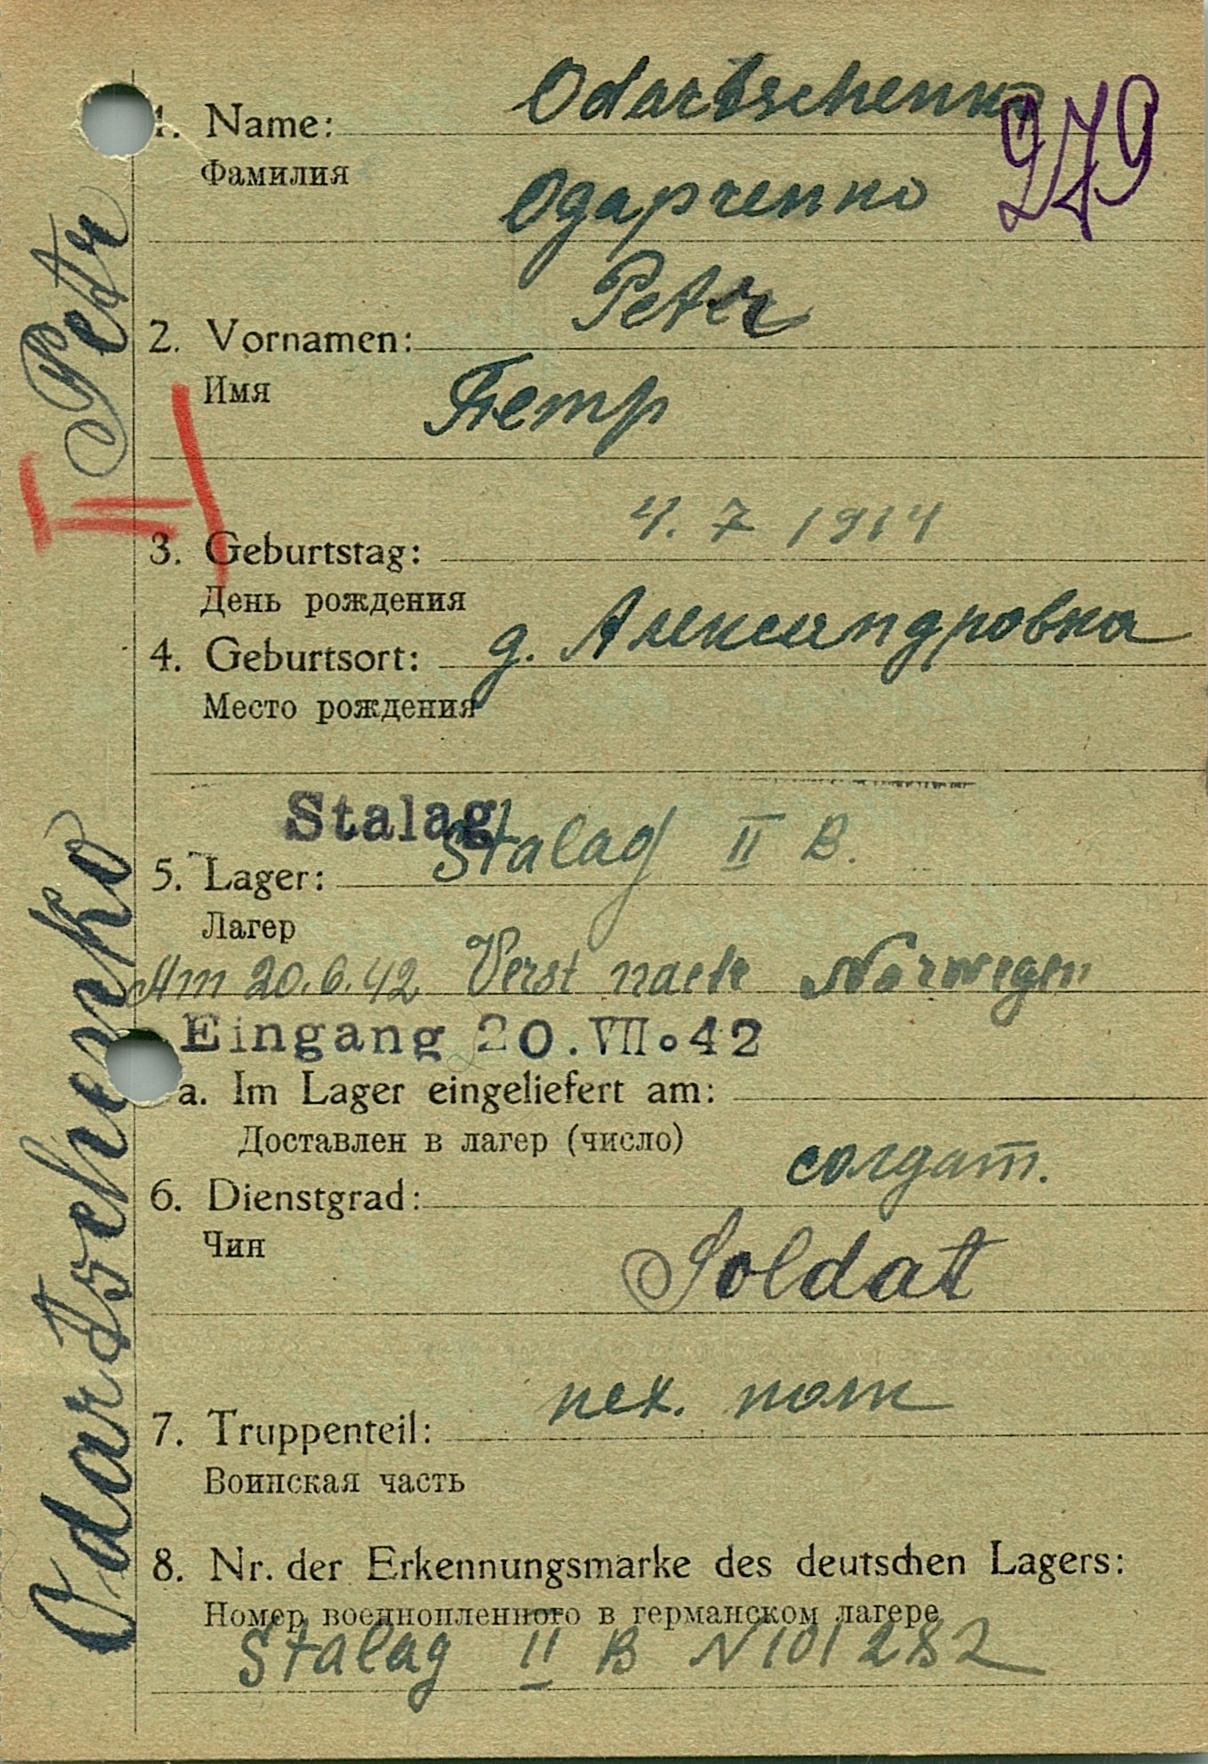 Odartschenko
1. Name:
Фамилия
Одарченко
279
Peter
2. Vornamen:
Имя
Петр
4. 7 1914
3. Geburtstag:
День рождения
4. Geburtsort: д. Александровка
Место рождения
Stalag
5. Lager: Stalag II B.
Лагер
Am 20.6.42 Verst nach Norwegen
Eingang 20.VII.42
a. Im Lager eingeliefert am:
Доставлен в лагер (число)
6. Dienstgrad: солдат.
Чин
Soldat
7. Truppenteil: пех. полк
Воинская часть
8. Nr. der Erkennungsmarke des deutschen Lagers:
Номер военнопленного в германском лагере
Stalag II B N 101282
Odartschenko Petr